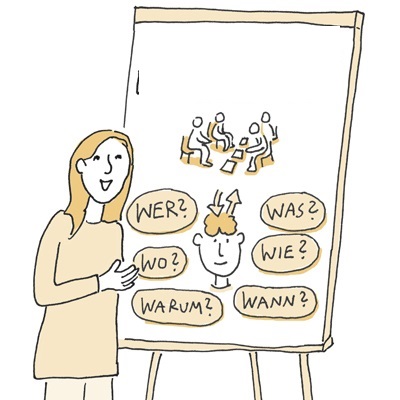 WER?
WAS?
WO?
WIE?
WARUM?
WANN?